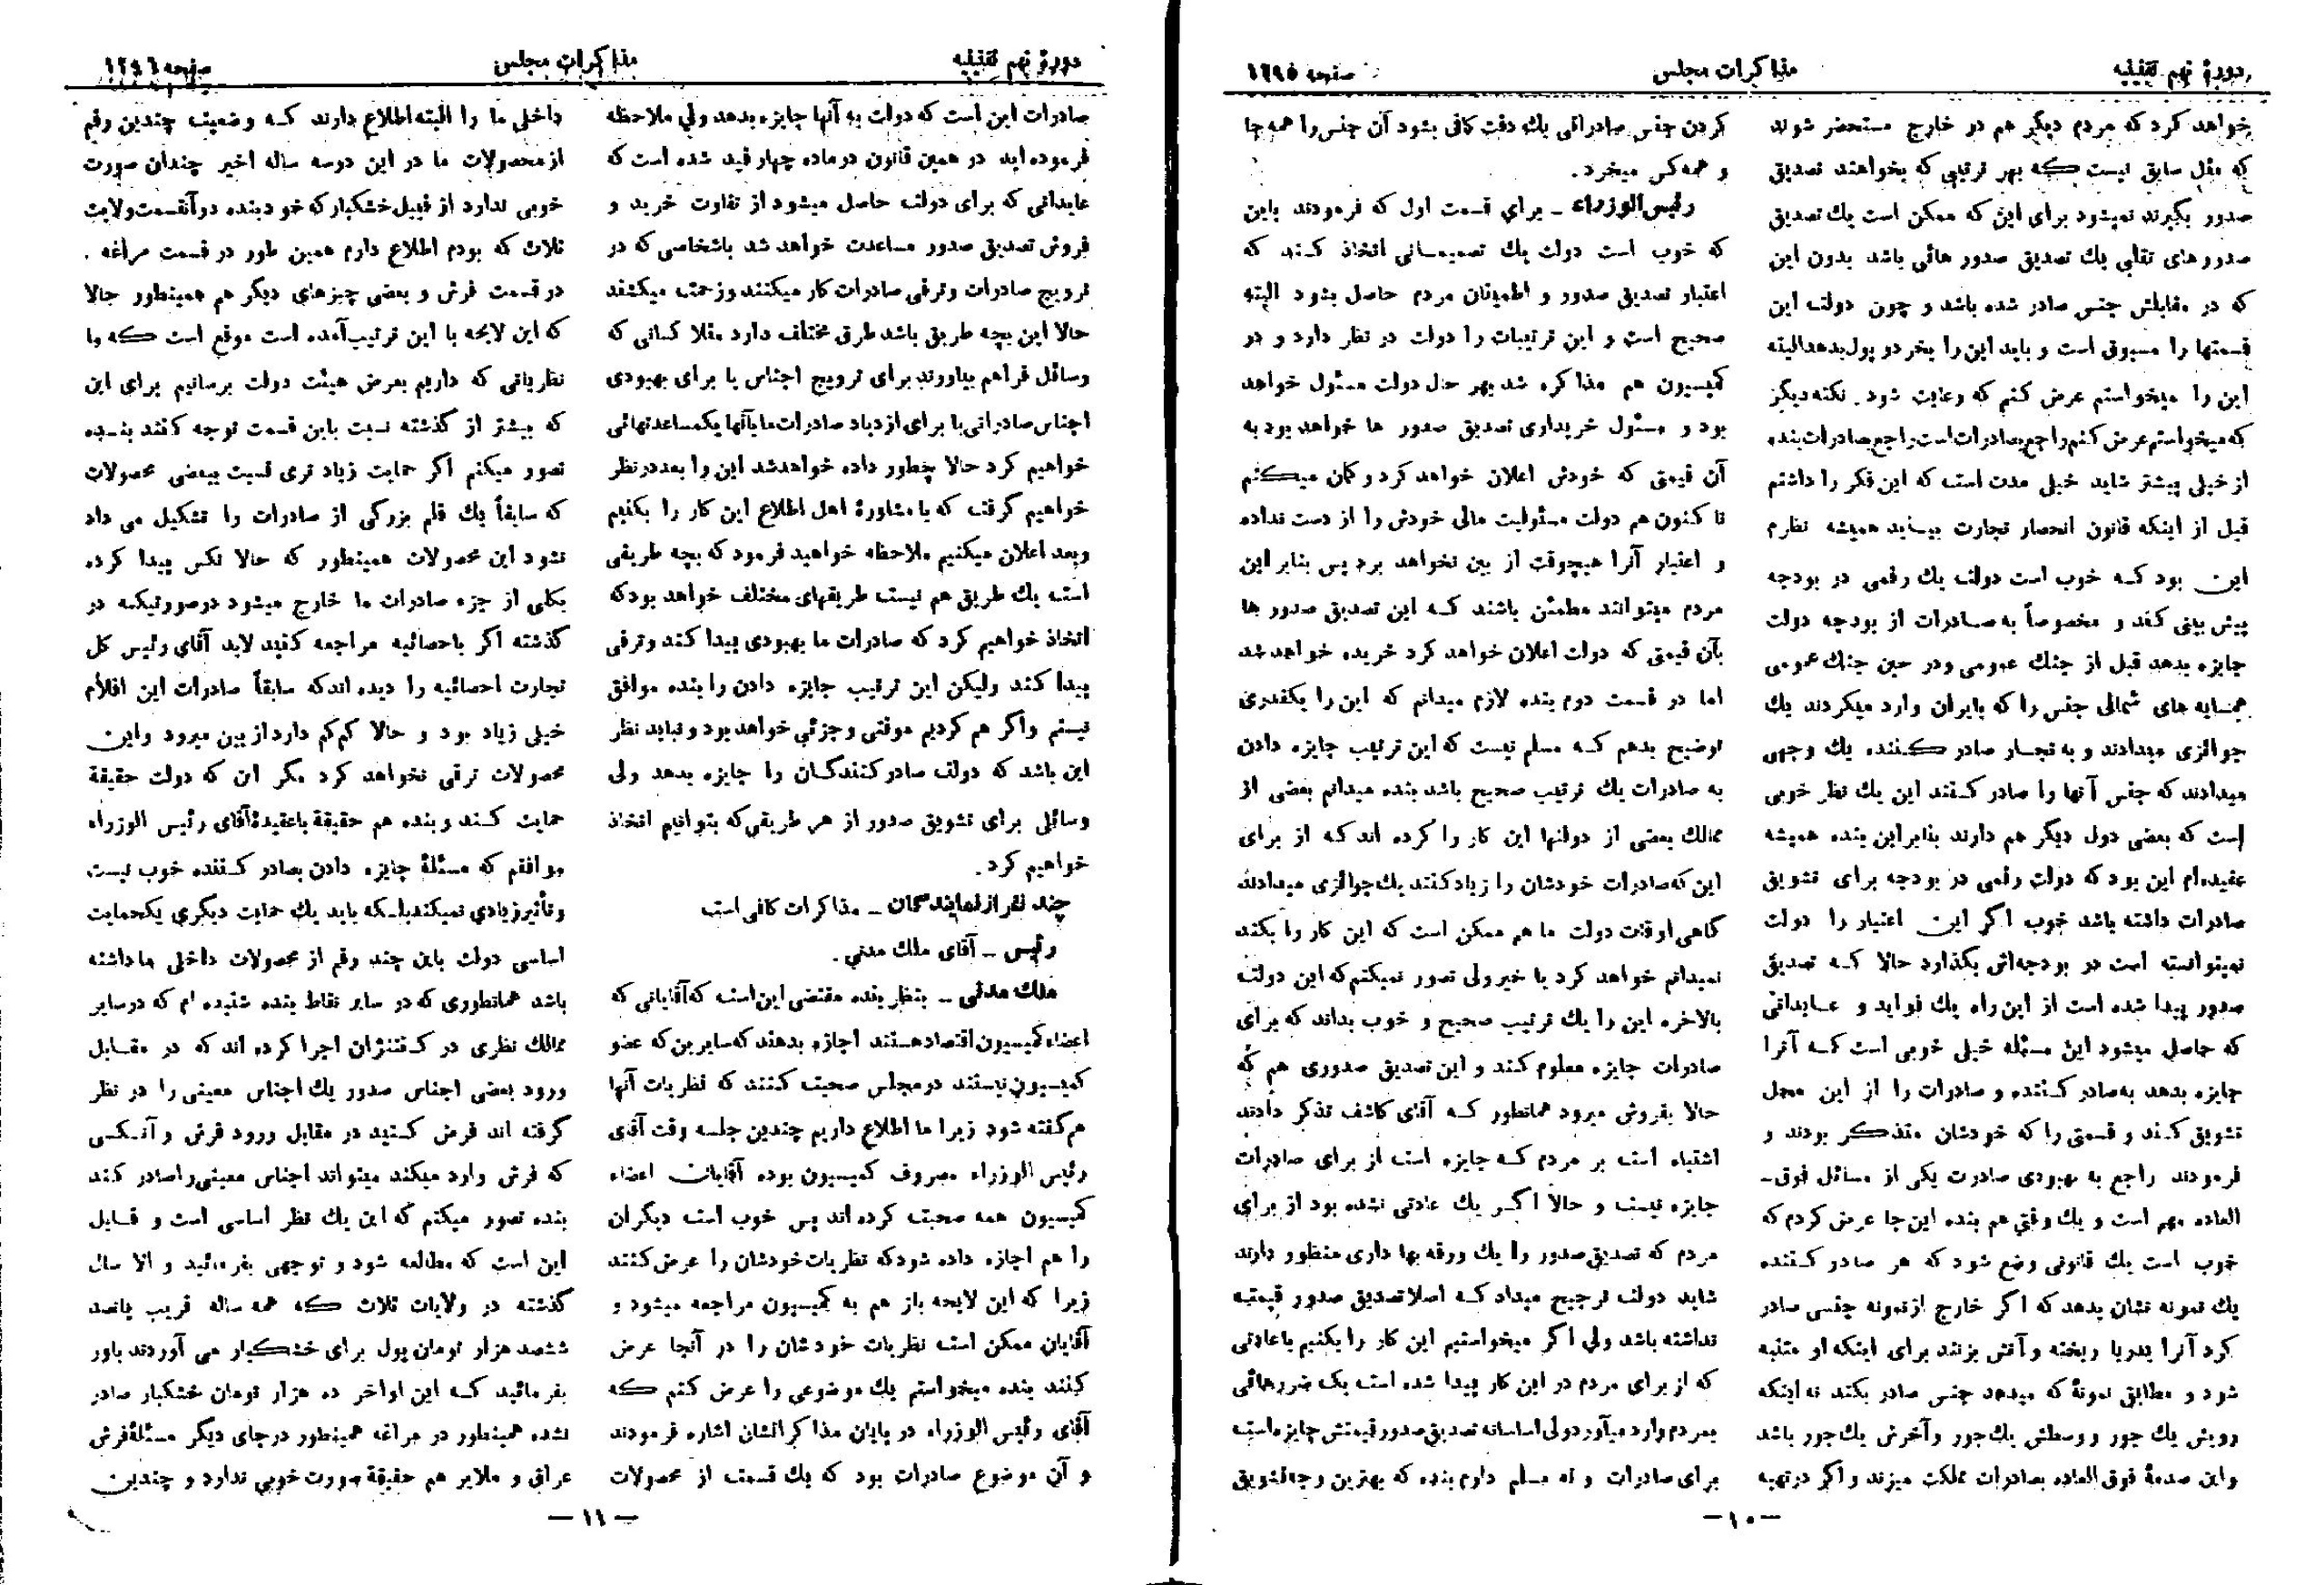 دورهٔ نهم تقنینیه
مذاکرات مجلس
صفحه ۱۲۹۵
خواهد کرد که مردم دیگر هم در خارج مستحضر شوند
که مثل سابق نیست که بهر ترتیبی که بخواهند تصدیق
صدور بگیرند نمیشود برای این که ممکن است یك تصدیق
صدورهای تقلبی یك تصدیق صدور هائی باشد بدون این
که در مقابلش جنس صادر شده باشد و چون دولت این
قسمتها را مسبوق است و باید این را بخرد و پول بدهد البته
این را میخواستم عرض کنم که رعایت شود. نکته دیگر
که میخواستم عرض کنم راجع بصادرات است راجع بصادرات بنده
از خیلی پیشتر شاید خیلی مدت است که این فکر را داشتم
قبل از اینکه قانون انحصار تجارت بیاید همیشه نظرم
این بود که خوب است دولت یك رقمی در بودجه
پیش بینی کند و مخصوصاً به صادرات از بودجه دولت
جایزه بدهد قبل از جنك عمومی و در حین جنك عمومی
همسایه های شمالی جنس را که بایران وارد میکردند یك
جوائزی میدادند و به تجار صادر کننده یك وجهی
میدادند که جنس آنها را صادر کنند این یك نظر خوبی
است که بعضی دول دیگر هم دارند بنابراین بنده همیشه
عقیده‌ام این بود که دولت رقمی در بودجه برای تشویق
صادرات داشته باشد خوب اگر این اعتبار را دولت
نمیتوانسته است در بودجه‌اش بگذارد حالا که تصدیق
صدور پیدا شده است از این راه یك فواید و عایداتی
که حاصل میشود این مسئله خیلی خوبی است که آنرا
جایزه بدهد به صادر کننده و صادرات را از این محل
تشویق کند و قسمتی را که خودشان متذکر بودند و
فرمودند راجع به بهبودی صادرت یکی از مسائل فوق-
العاده مهم است و یك وقتی هم بنده این جا عرض کردم که
خوب است یك قانونی وضع شود که هر صادر کننده
یك نمونه نشان بدهد که اگر خارج از نمونه جنسی صادر
کرد آنرا بدریا ریخته و آتش بزنند برای اینکه او متنبه
شود و مطابق نمونهٔ که میدهد جنس صادر بکند نه اینکه
رویش یك جور و وسطش یك جور و آخرش یك جور باشد
و این صدمهٔ فوق العاده بصادرات مملکت میزند و اگر در تهیه
کردن جنس صادراتی یك دقت کافی بشود آن جنس را همه جا
و همه کس میخرد.
رئیس الوزراء ـ برای قسمت اول که فرمودند باین
که خوب است دولت یك تصمیماتی اتخاذ کند که
اعتبار تصدیق صدور و اطمینان مردم حاصل بشود البته
صحیح است و این ترتیبات را دولت در نظر دارد و در
کمیسیون هم مذاکره شد بهر حال دولت مسئول خواهد
بود و مسئول خریداری تصدیق صدور ها خواهد بود به
آن قیمتی که خودش اعلان خواهد کرد و گمان میکنم
تا کنون هم دولت مسئولیت مالی خودش را از دست نداده
و اعتبار آنرا هیچوقت از بین نخواهد برد پس بنابر این
مردم میتوانند مطمئن باشند که این تصدیق صدور ها
بآن قیمتی که دولت اعلان خواهد کرد خریده خواهد شد
اما در قسمت دوم بنده لازم میدانم که این را یکقدری
توضیح بدهم که مسلم نیست که این ترتیب جایزه دادن
به صادرات یك ترتیب صحیح باشد بنده میدانم بعضی از
ممالك بعضی از دولتها این کار را کرده اند که از برای
این که صادرات خودشان را زیاد کنند یك جوائزی میدادند
گاهی اوقات دولت ما هم ممکن است که این کار را بکند
نمیدانم خواهد کرد یا خیر ولی تصور نمیکنم که این دولت
بالاخره این را یك ترتیب صحیح و خوب بداند که برای
صادرات جایزه معلوم کند و این تصدیق صدوری هم که
حالا بفروش میرود همانطور که آقای کاشف تذکر دادند
اشتباه است بر مردم که جایزه است از برای صادرات
جایزه نیست و حالا اگر یك عادتی نشده بود از برای
مردم که تصدیق صدور را یك ورقه بها داری منظور دارند
شاید دولت ترجیح میداد که اصلا تصدیق صدور قیمتیه
نداشته باشد ولی اگر میخواستیم این کار را بکنیم با عادتی
که از برای مردم در این کار پیدا شده است یك ضررهائی
بمردم وارد میآورد ولی اساسا نه تصدیق صدور قیمتش جایزه است
برای صادرات و نه مسلم دارم بنده که بهترین وجه تشویق
ـ ۱۰ ـ
دورهٔ نهم تقنینیه
مذاکرات مجلس
صفحه ۱۲۹۶
صادرات این است که دولت به آنها جایزه بدهد ولی ملاحظه
فرموده اید در همین قانون در ماده چهار قید شده است که
عایداتی که برای دولت حاصل میشود از تفاوت خرید و
فروش تصدیق صدور مساعدت خواهد شد باشخاصی که در
ترویج صادرات و ترقی صادرات کار میکنند و زحمت میکشند
حالا این بچه طریق باشد طرق مختلف دارد مثلا کسانی که
وسائل فراهم بیاورند برای ترویج اجناس یا برای بهبودی
اجناس صادراتی یا برای ازدیاد صادرات ما بآنها یکمساعدتهائی
خواهیم کرد حالا چطور داده خواهد شد این را بعد در نظر
خواهیم گرفت که با مشاورهٔ اهل اطلاع این کار را بکنیم
و بعد اعلان میکنیم ملاحظه خواهید فرمود که بچه طریقی
است یك طریق هم نیست طریقهای مختلف خواهد بود که
اتخاذ خواهیم کرد که صادرات ما بهبودی پیدا کند و ترقی
پیدا کند ولیکن این ترتیب جایزه دادن را بنده موافق
نیستم و اگر هم کردیم موقتی و جزئی خواهد بود و نباید نظر
این باشد که دولت صادر کنندگان را جایزه بدهد ولی
وسائلی برای تشویق صدور از هر طریقی که بتوانیم اتخاذ
خواهیم کرد.
چند نفر از نمایندگان ـ مذاکرات کافی است
رئیس ـ آقای ملك مدنی.
ملك مدنی ـ بنظر بنده مقتضی این است که آقایانی که
اعضاء کمیسیون اقتصاد هستند اجازه بدهند که سایرین که عضو
کمیسیون نیستند در مجلس صحبت کنند که نظریات آنها
هم گفته شود زیرا ما اطلاع داریم چندین جلسه وقت آقای
رئیس الوزراء مصروف کمیسیون بوده آقایان اعضاء
کمیسیون همه صحبت کرده اند پس خوب است دیگران
را هم اجازه داده شود که نظریات خودشان را عرض کنند
زیرا که این لایحه باز هم به کمیسیون مراجعه میشود و
آقایان ممکن است نظریات خودشان را در آنجا عرض
کنند بنده میخواستم یك موضوعی را عرض کنم که
آقای رئیس الوزراء در پایان مذاکراتشان اشاره فرمودند
و آن موضوع صادرات بود که یك قسمت از محصولات
داخلی ما را البته اطلاع دارند که وضعیت چندین رقم
از محصولات ما در این دو سه ساله اخیر چندان صورت
خوبی ندارد از قبیل خشکبار که خود بنده در آنقسمت ولایت
ثلاث که بودم اطلاع دارم همین طور در قسمت مراغه.
در قسمت فرش و بعضی چیزهای دیگر هم همینطور حالا
که این لایحه با این ترتیب آمده است موقع است که ما
نظریاتی که داریم بعرض هیئت دولت برسانیم برای این
که بیشتر از گذشته نسبت باین قسمت توجه کنند بنده
تصور میکنم اگر حمایت زیاد تری نسبت ببعضی محصولات
که سابقاً یك قلم بزرگی از صادرات را تشکیل می داد
نشود این محصولات همینطور که حالا نکس پیدا کرده
بکلی از جزء صادرات ما خارج میشود در صورتیکه در
گذشته اگر باحصائیه مراجعه کنید لابد آقای رئیس کل
تجارت احصائیه را دیده اند که سابقاً صادرات این اقلام
خیلی زیاد بود و حالا کم کم دارد از بین میرود و این
محصولات ترقی نخواهد کرد مگر ان که دولت حقیقة
حمایت کند و بنده هم حقیقة با عقیدهٔ آقای رئیس الوزراء
موافقم که مسئلهٔ جایزه دادن بصادر کننده خوب نیست
و تأثیر زیادی نمیکند بلکه باید یك حمایت دیگری یکحمایت
اساسی دولت باین چند رقم از محصولات داخلی ما داشته
باشد همانطوری که در سایر نقاط بنده شنیده ام که در سایر
ممالك نظری در کنتنژان اجرا کرده اند که در مقابل
ورود بعضی اجناس صدور یك اجناس معینی را در نظر
گرفته اند فرض کنید در مقابل ورود فرش و آنکسی
که فرش وارد میکند میتواند اجناس معینی را صادر کند
بنده تصور میکنم که این یك نظر اساسی است و قابل
این است که مطالعه شود و توجهی بفرمائید و الا سال
گذشته در ولایات ثلاث که همه ساله قریب پانصد
ششصد هزار تومان پول برای خشکبار می آوردند باور
بفرمائید که این اواخر ده هزار تومان خشکبار صادر
نشده همینطور در مراغه همینطور در جای دیگر مسئلهٔ فرش
عراق و ملایر هم حقیقة صورت خوبی ندارد و چندین
ـ ۱۱ ـ